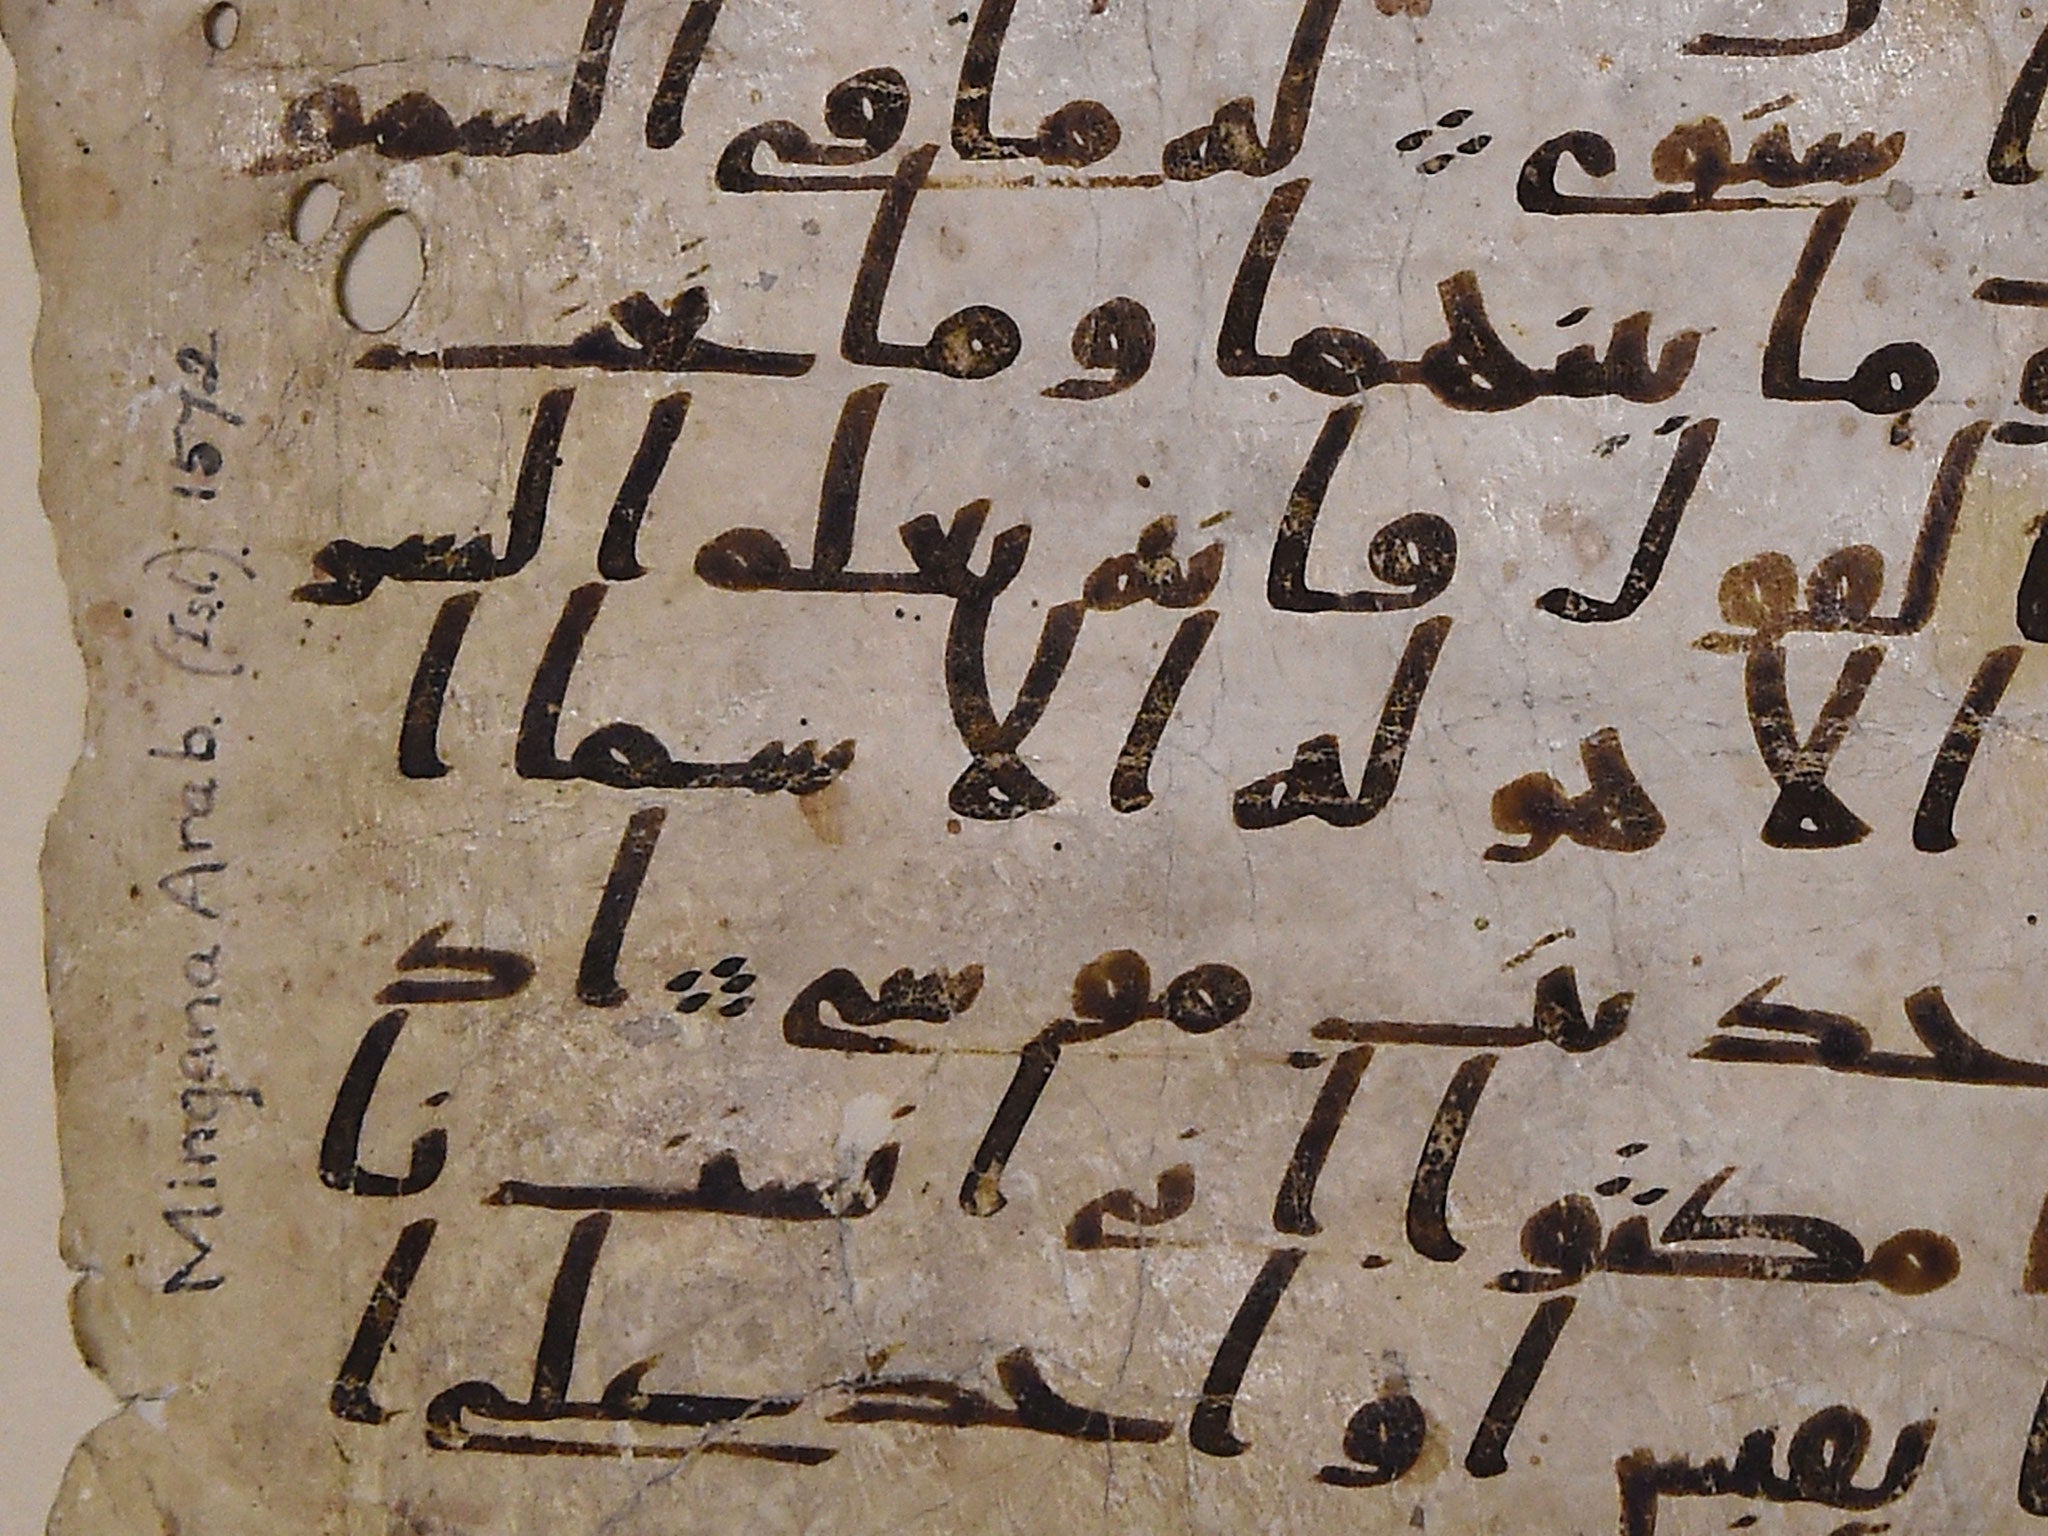 ا ستوى له ما في السمو
و ما بينهما وما تحت
القو ل فا نه يعلم السر
الا هو له الا سما ا
حد يث موسى ا ذ
مكثوا ا ني ا نست نا
بقبس ا و ا جد على ا
Mingana Arab. (Isl.) 1572